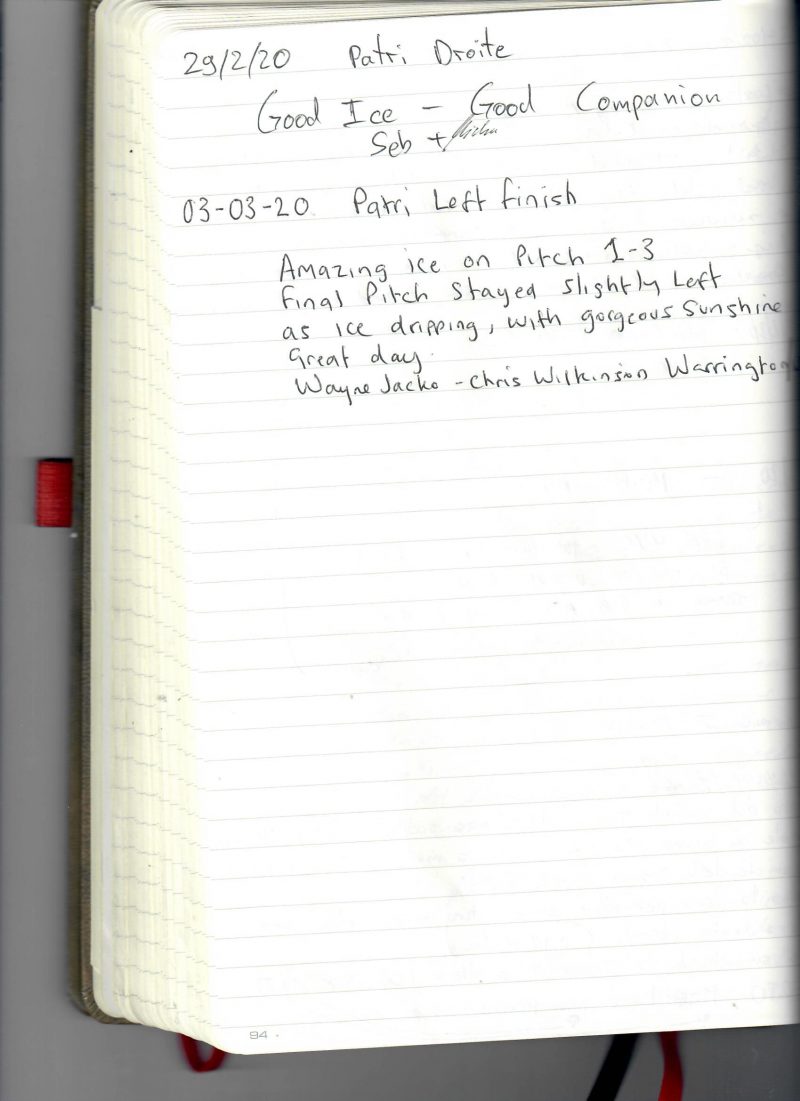 29/2/20 Patri Droite
Good Ice – Good Companion
Seb +
03-03-20 Patri Left finish
Amazing ice on Pitch 1-3
final Pitch Stayed slightly Left
as ice dripping, with gorgeous Sunshine
Great day.
Wayne Jacko - Chris Wilkinson Warrington
94